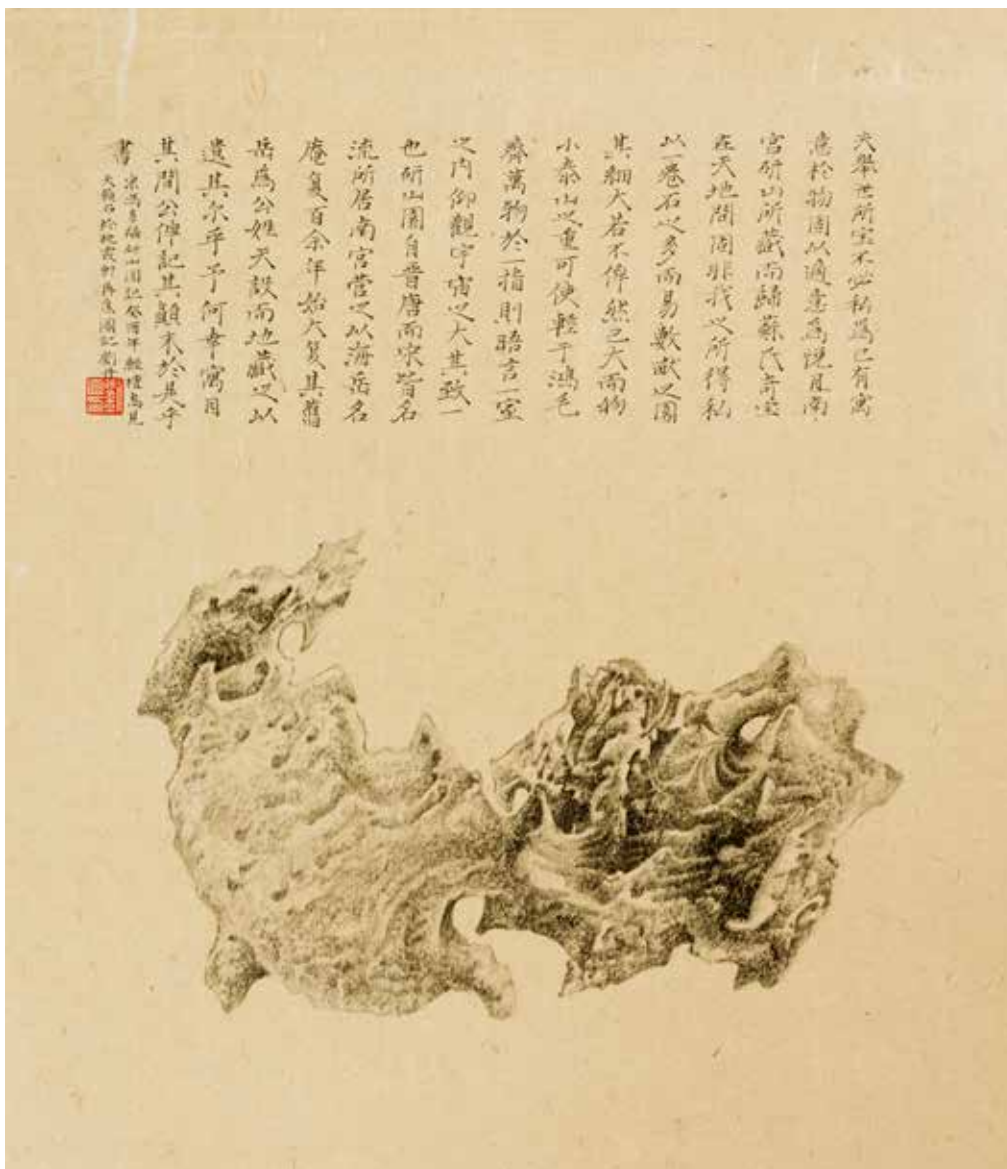 夫舉世所宝不必私爲己有寓
意於物固以適意爲悅且南
宮研山所藏而歸蘇氏奇宝
在天地間固非我之所得私
以一卷石之多而易數畝之園
其細大若不侔然己大而物
小泰山之重可使輕于鴻毛
齊萬物於一指則晤言一室
之内仰觀宇宙之大其致一
也研山園自晋唐而宋皆名
流所居南宮營之以海岳名
庵复百余年始大复其舊
岳爲公姓天設而地藏之以
遺其尔乎予何幸寓目
其間公俾記其顛末於是乎
書
宋馮多福研山園記
圖記劉丹